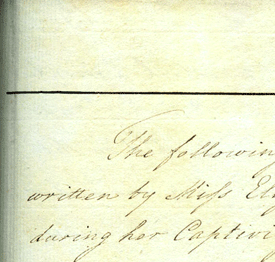 The following
written by Miſs El
during her Captivi